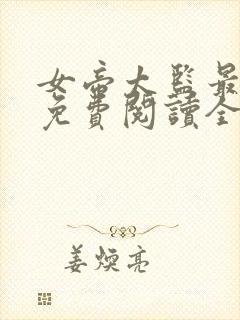 女帝大監最
免費閱讀全
姜煥亮